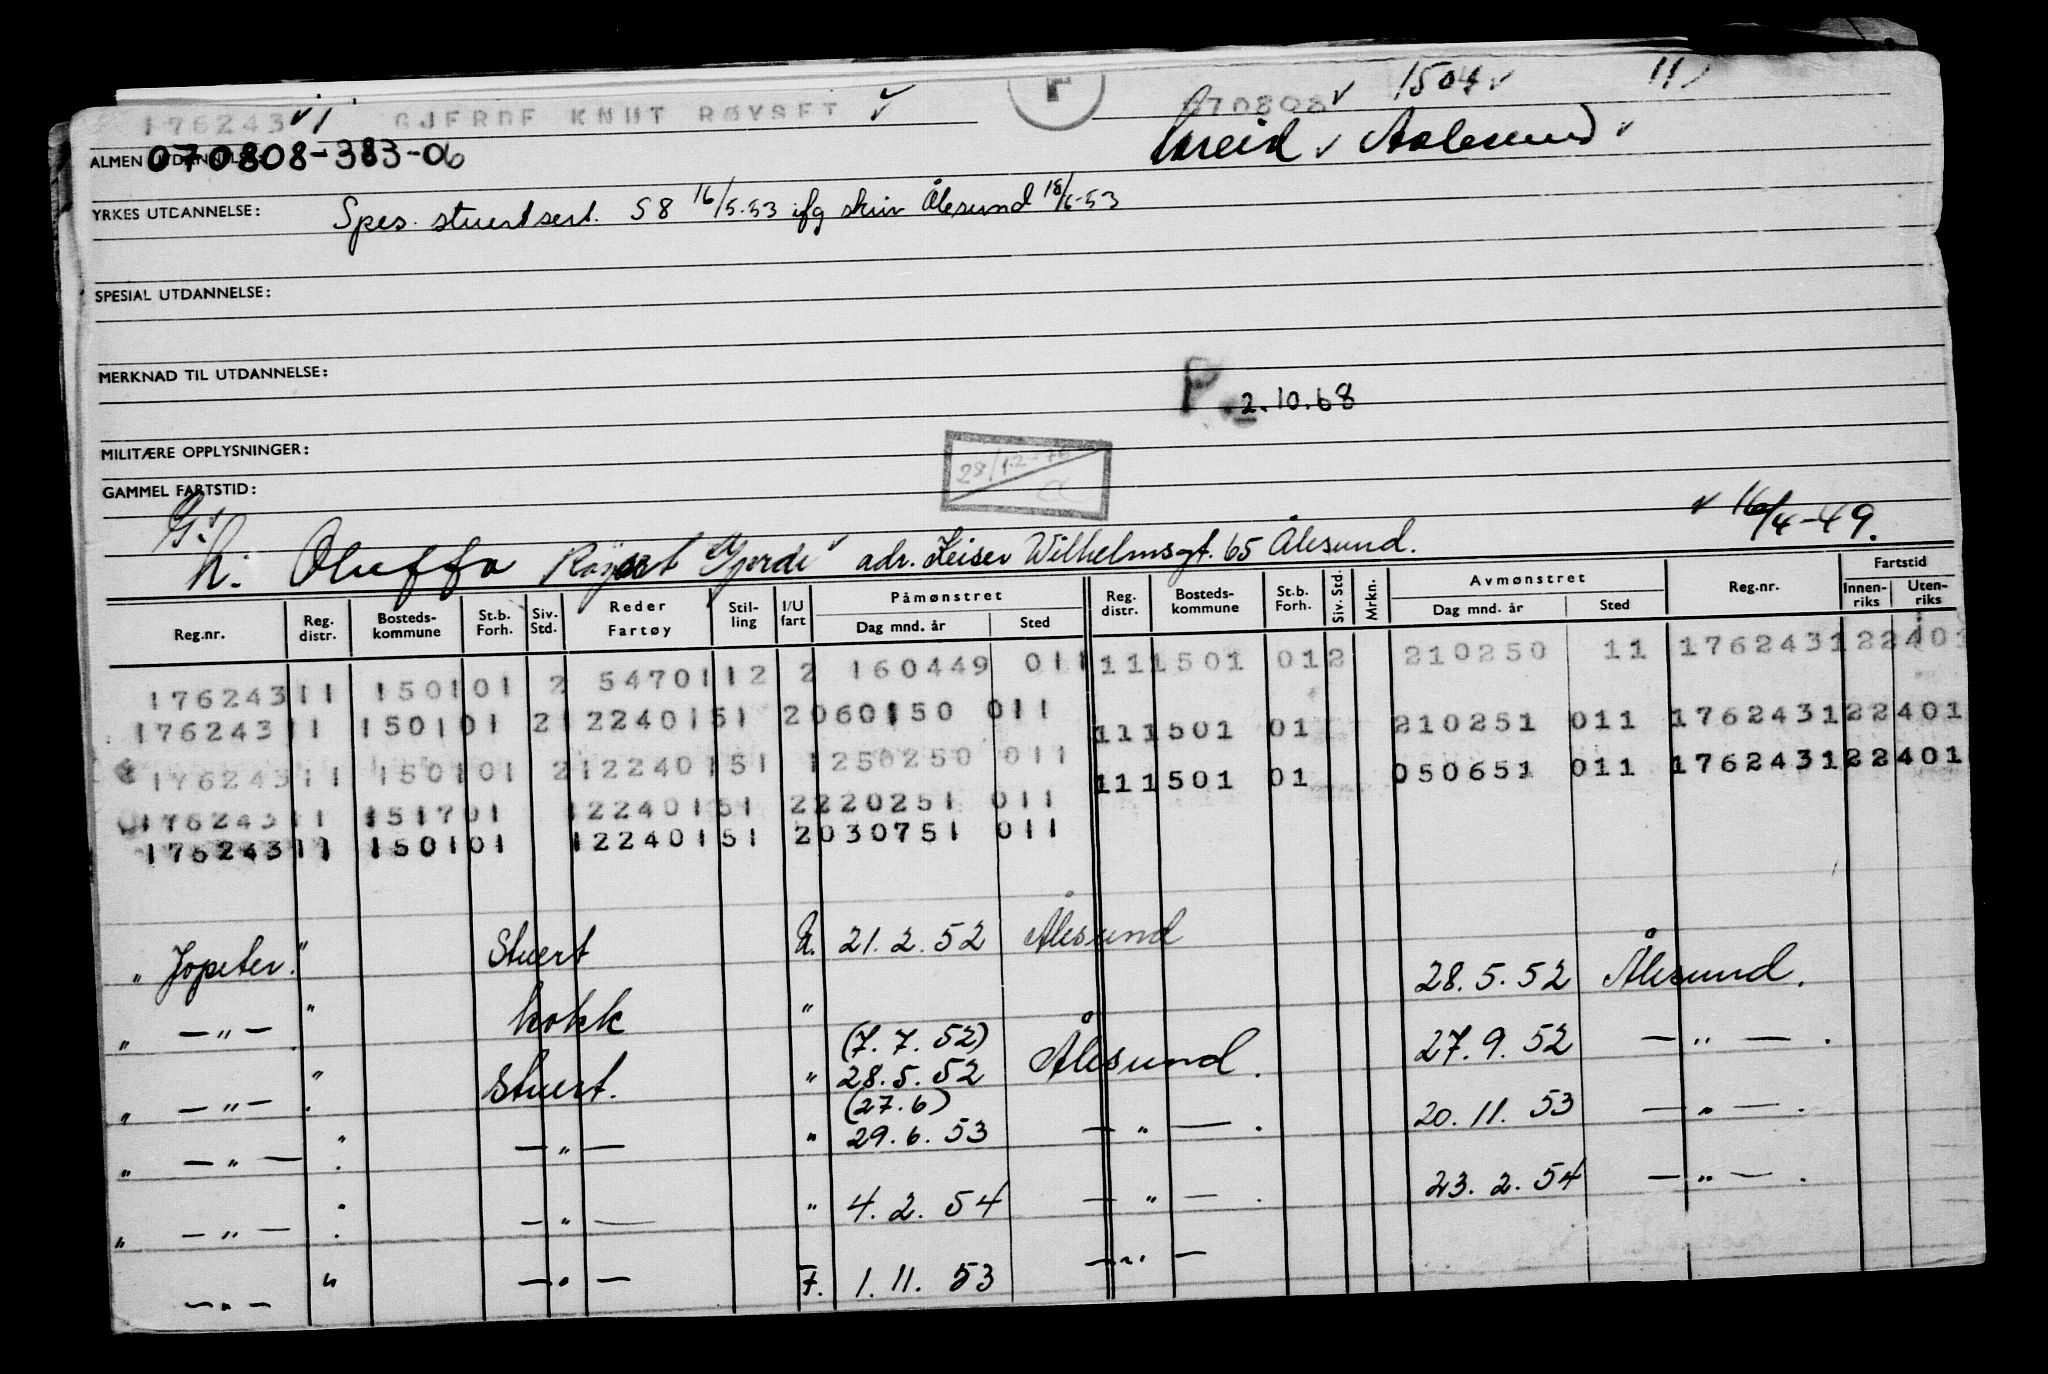 176243 1 GJERDE KNUT RØYSET 070808 1504 11
ALMEN UTDANNELSE: 070808-383-06 Aalesund
YRKES UTDANNELSE: Spes. stuertsert. S8 16/5.53 ifg skriv Ålesund 18/6-53
SPESIAL UTDANNELSE:
MERKNAD TIL UTDANNELSE:
P. 2.10.68
MILITÆRE OPPLYSNINGER:
GAMMEL FARTSTID:
G: 16/4-49.
h. Oluffa Røyset Gjerde adr. Keiser Wilhelmsgt. 65 Ålesund.
Reg.nr. Reg. distr. Bosteds-kommune St.b. Forh. Siv. Std. Reder Fartøy Stil-ling I/U fart Påmønstret Dag mnd. år Sted Reg. distr. Bosteds-kommune St.b. Forh. Siv. Std. Mrkn. Avmønstret Dag mnd. år Sted Reg.nr. Fartstid Innen-riks Uten-riks
176243 11 1501 01 2 54701 12 2 160449 011 11 1501 01 2 210250 11 176243122401
176243 11 1501 01 2 1 22401 51 2 060150 011 11 1501 01 210251 011 176243122401
176243 11 1501 01 2 122401 51 1 250250 011 11 1501 01 050651 011 176243122401
176243 11 1517 01 122401 51 2 220251 011
176243 11 1501 01 122401 51 2 030751 011
" Jopeter. " Stuert U. 21.2.52 Ålesund 28.5.52 Ålesund.
" — " — " kokk " (7.7.52)
" — " — " Stuert. " 28.5.52 Ålesund. 27.9.52 — " — .
(27.6)
" — " — " — " — " 29.6.53 — " — . 20.11.53 — " — .
" — " — " — " — " 4.2.54 — " — . 23.2.54 — " — .
— " — " — " — F. 1.11.53 — " —